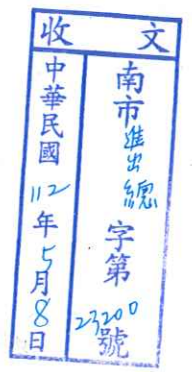 收文
南市進出總字第23200號
中華民國112年5月8日